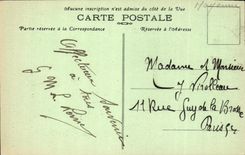 Aucune inscription n'est admise du côté de la Vue
CARTE POSTALE
Partie réservée à la Correspondance
Réservée à l'Adresse
Affectueux Souvenirs
à tous
Madame et Monsieur
J Virolleau
11 Rue Guy de la Brosse
Paris 5e